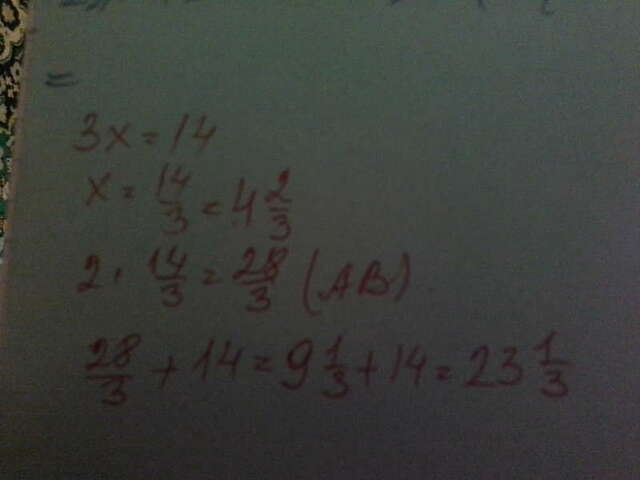 =
3x = 14
x = 14/3 = 4 2/3
2 · 14/3 = 28/3 (AB)
28/3 + 14 = 9 1/3 + 14 = 23 1/3